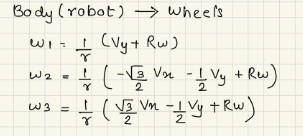 Body (robot) → wheels
ω1 = 1/r (Vy + Rω)
ω2 = 1/r (-√3/2 Vx - 1/2 Vy + Rω)
ω3 = 1/r (√3/2 Vx - 1/2 Vy + Rω)